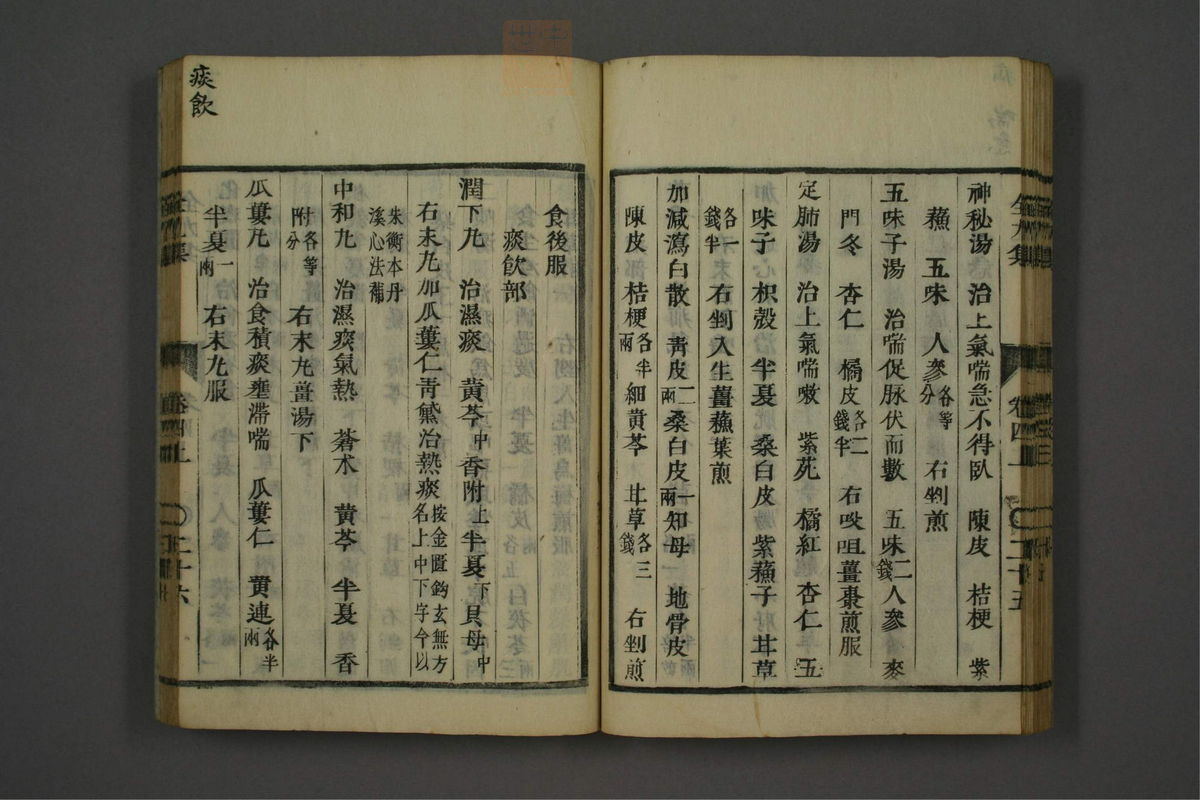 神秘湯 治上氣喘急不得臥 陳皮 桔梗 紫
蘓 五味 人參各等分 右剉煎
五味子湯 治喘促脉伏而數 五味二錢人參 麥
門冬 杏仁 橘皮各二錢半 右㕮咀薑棗煎服
定肺湯 治上氣喘嗽 紫苑 橘紅 杏仁 五
加味子 枳殻 半夏 桑白皮 紫蘓子 甘草
各一錢半 右剉入生薑蘓葉煎
加減瀉白散 靑皮二兩桑白皮一兩知母 地骨皮
陳皮 桔梗各半兩 細黄芩 甘草各三錢 右剉煎
卷四上 二十五
食後服
痰飲部
潤下丸 治濕痰 黄芩中香附上半夏下貝母中
右末丸加瓜蔞仁靑黛治熱痰按金匱鈎玄無方名上中下字今以
朱衡本丹溪心法補
中和丸 治濕痰氣熱 蒼术 黄芩 半夏 香
附各等分 右末丸薑湯下
瓜蔞丸 治食積痰壅滯喘 瓜蔞仁 黄連各半兩
半夏一兩 右末丸服
卷四上 二十六
痰飲